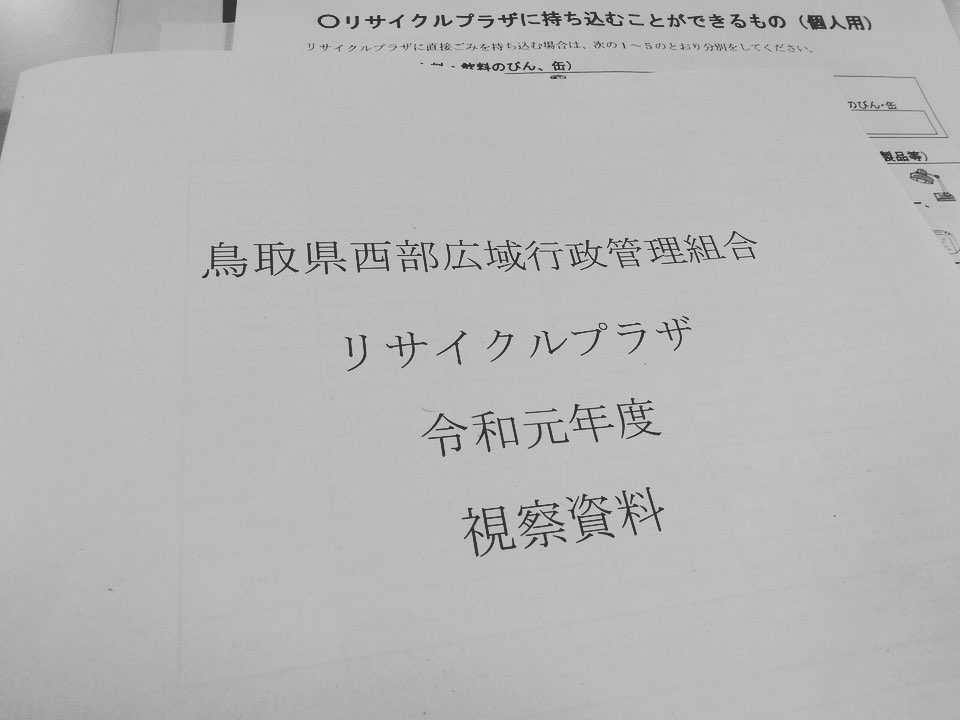 〇リサイクルプラザに持ち込むことができるもの（個人用）
リサイクルプラザに直接ごみを持ち込む場合は、次の１～５のとおり分別をしてください。
料・飲料のびん、缶）
のびん・缶
製品等）
鳥取県西部広域行政管理組合
リサイクルプラザ
令和元年度
視察資料